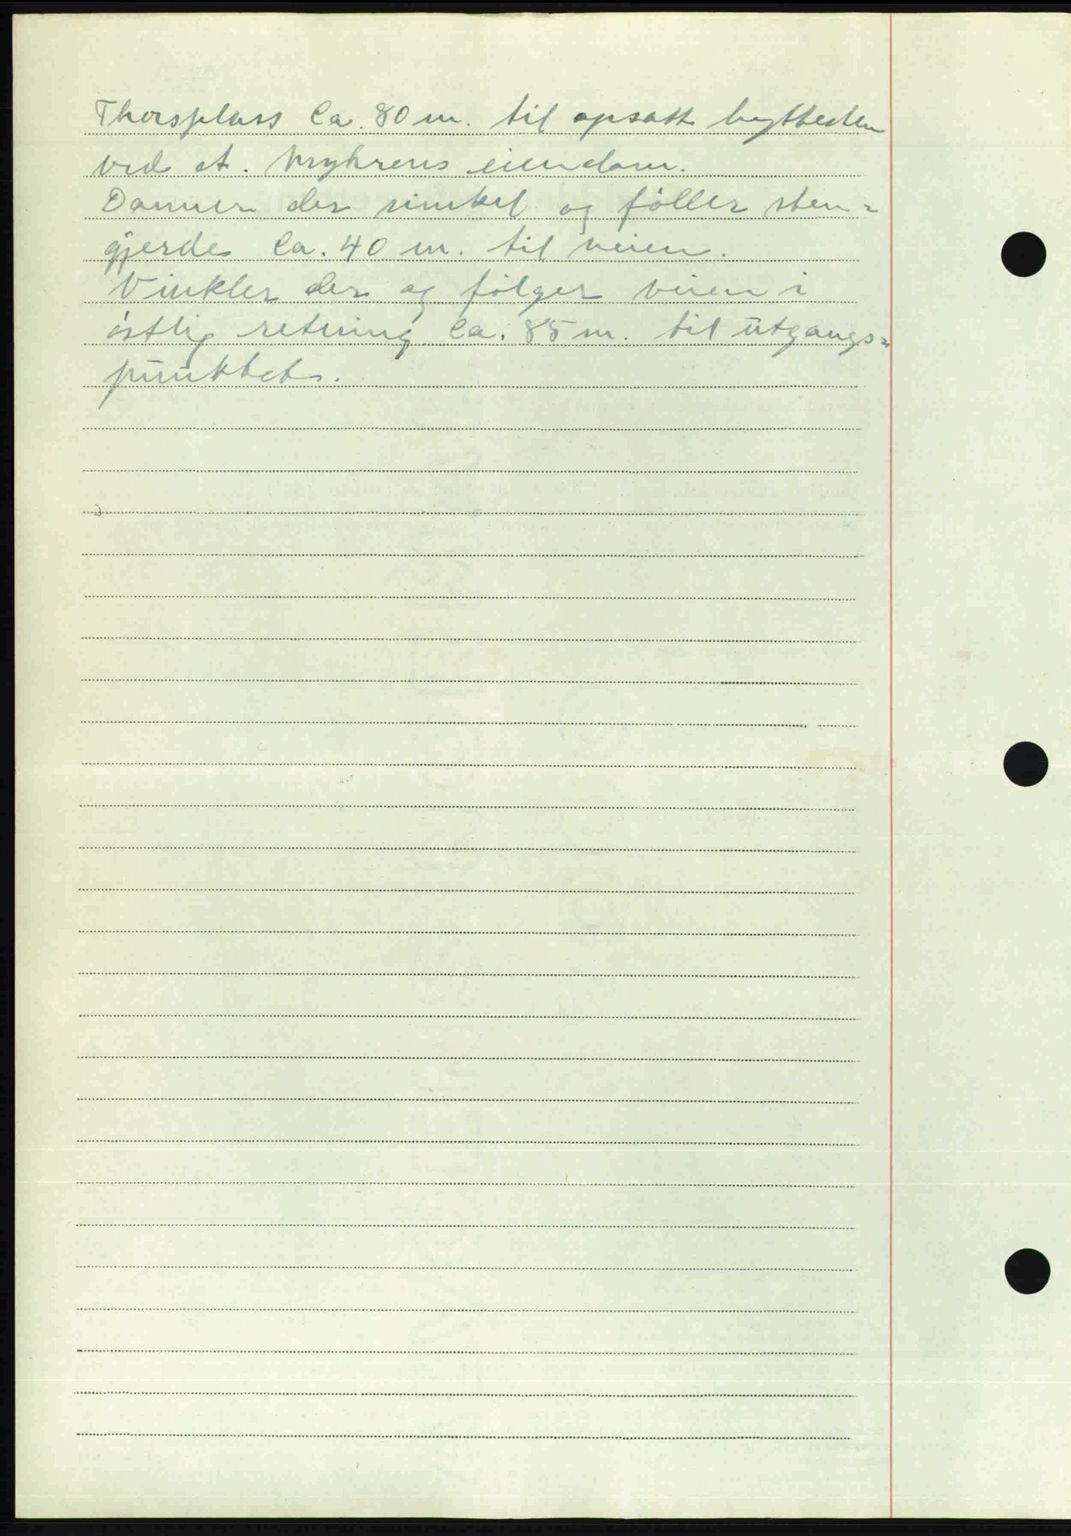 Thorsplass Ca. 80 m. til opsatt byttesten
ved A. Myhrens eiendom.
Danner der vinkel og føller sten=
gjerde Ca. 40 m. til veien.
Vinkler der og følger veien i
östlig retning Ca. 85 m. til ŭtgangs=
pŭnktet.